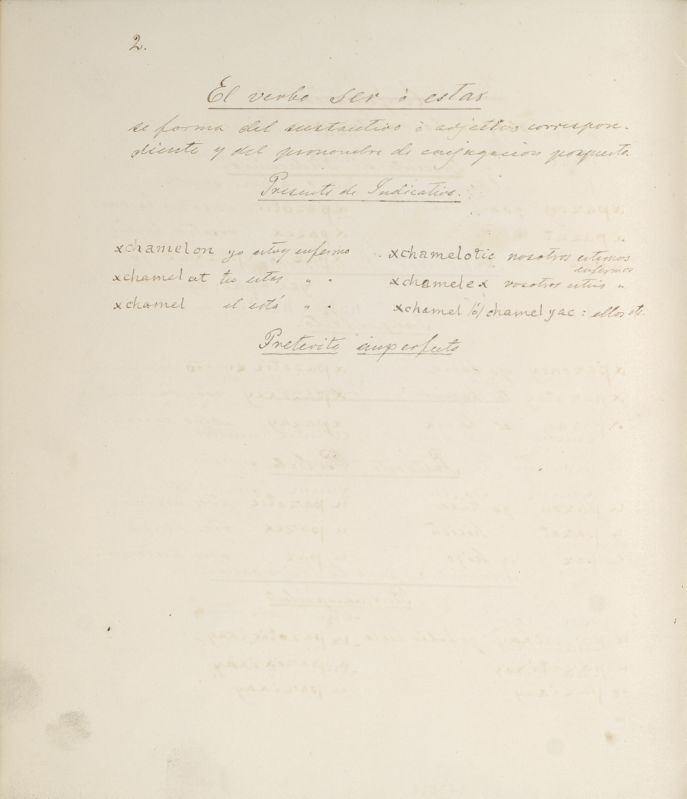 2.
El verbo ser ò estar
se forma del sustantivo ò adjetivo correspon-
diente y del pronombre de conjugacion pospuesto.
Presente de Indicativo.
xchamelon yo estoy enfermo . xchamelotic nosotros estamos enfermos
xchamelat tu estas " . xchamelex vosotros estais "
xchamel el está " . xchamel /ó/ chamelyac : ellos etc.
Preterito imperfecto